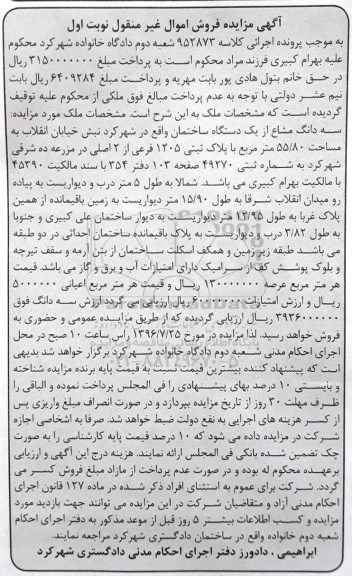 آگهی مزایده فروش اموال غیر منقول نوبت اول
به موجب پرونده اجرائی کلاسه ۹۵۲۸۷۳ شعبه دوم دادگاه خانواده شهرکرد محکوم
علیه بهرام کبیری فرزند مراد محکوم است به پرداخت مبلغ ۳۱۵۰۰۰۰۰۰۰ ریال
در حق خانم بتول هادی پور بابت مهریه و پرداخت مبلغ ۶۴۰۹۲۸۴ ریال بابت
نیم عشر دولتی با توجه به عدم پرداخت مبالغ فوق ملکی از محکوم علیه توقیف
گردیده است که مشخصات ملک به این شرح است. مشخصات ملک مورد مزایده:
سه دانگ مشاع از یک دستگاه ساختمان واقع در شهرکرد نبش خیابان انقلاب به
مساحت ۵۵/۸۰ متر مربع با پلاک ثبتی ۱۲۰۵ فرعی از ۲ اصلی در مزرعه ده شرقی
شهرکرد به شماره ثبتی ۴۹۲۷۰ صفحه ۱۰۳ دفتر ۳۵۴ با سند مالکیت ۴۵۳۹۰
با مالکیت بهرام کبیری می باشد. شمالا به طول ۵ متر درب و دیواریست به پیاده
رو میدان انقلاب شرقا به طول ۱۵/۹۰ متر دیواریست به زمین باقیمانده از همین
پلاک غربا به طول ۱۲/۹۵ متر دیواریست به دیوار ساختمان علی کبیری و جنوبا
به طول ۳/۸۲ درب و دیواریست به پلاک باقیمانده ساختمان احداثی در دو طبقه
می باشد طبقه زیرزمین و همکف اسکلت ساختمان از بتن آرمه و سقف تیرچه
و بلوک پوشش کف از سرامیک دارای امتیازات آب و برق و گاز می باشد. قیمت
هر متر مربع عرصه ۱۳۰۰۰۰۰۰۰ ریال و قیمت هر متر مربع اعیانی ۵۰۰۰۰۰۰
ریال و ارزش امتیازات ریال ارزیابی می گردد ارزش سه دانگ فوق
۳۹۳۶۰۰۰۰۰۰ ریال ارزیابی گردیده که از طریق مزایده عمومی و حضوری به
فروش خواهد رسید. لذا مزایده در مورخ ۱۳۹۶/۷/۲۵ راس ساعت ۱۰ صبح در محل
اجرای احکام مدنی شعبه دوم دادگاه خانواده شهرکرد برگزار خواهد شد بدیهی
است که پیشنهاد کننده بیشترین قیمت نسبت به قیمت پایه برنده مزایده شناخته
و بایستی ۱۰ درصد بهای پیشنهادی را فی المجلس پرداخت نموده و الباقی را
ظرف مهلت ۳۰ روز از تاریخ مزایده بپردازد و در صورت انصراف مبلغ واریزی پس
از کسر هزینه های اجرایی به نفع دولت ضبط خواهد شد. صرفا به اشخاصی اجازه
شرکت در مزایده داده می شود که ۱۰ درصد قیمت پایه کارشناسی را به صورت
چک تضمین شده بانکی فی المجلس ارائه نمایند. هزینه درج این آگهی و ارزیابی
برعهده محکوم له بوده و در صورت عدم پرداخت از مازاد مبلغ فروش کسر می
گردد. شرکت برای عموم به استثنای افراد ذکر شده در ماده ۱۲۷ قانون اجرای
احکام مدنی آزاد و متقاضیان شرکت در این مزایده می توانند جهت بازدید مورد
مزایده و کسب اطلاعات بیشتر ۵ روز قبل از موعد مذکور به دفتر اجرای احکام
شعبه دوم خانواده واقع در ساختمان دادگستری شهرکرد مراجعه نمایند.
ابراهیمی ، دادورز دفتر اجرای احکام مدنی دادگستری شهرکرد